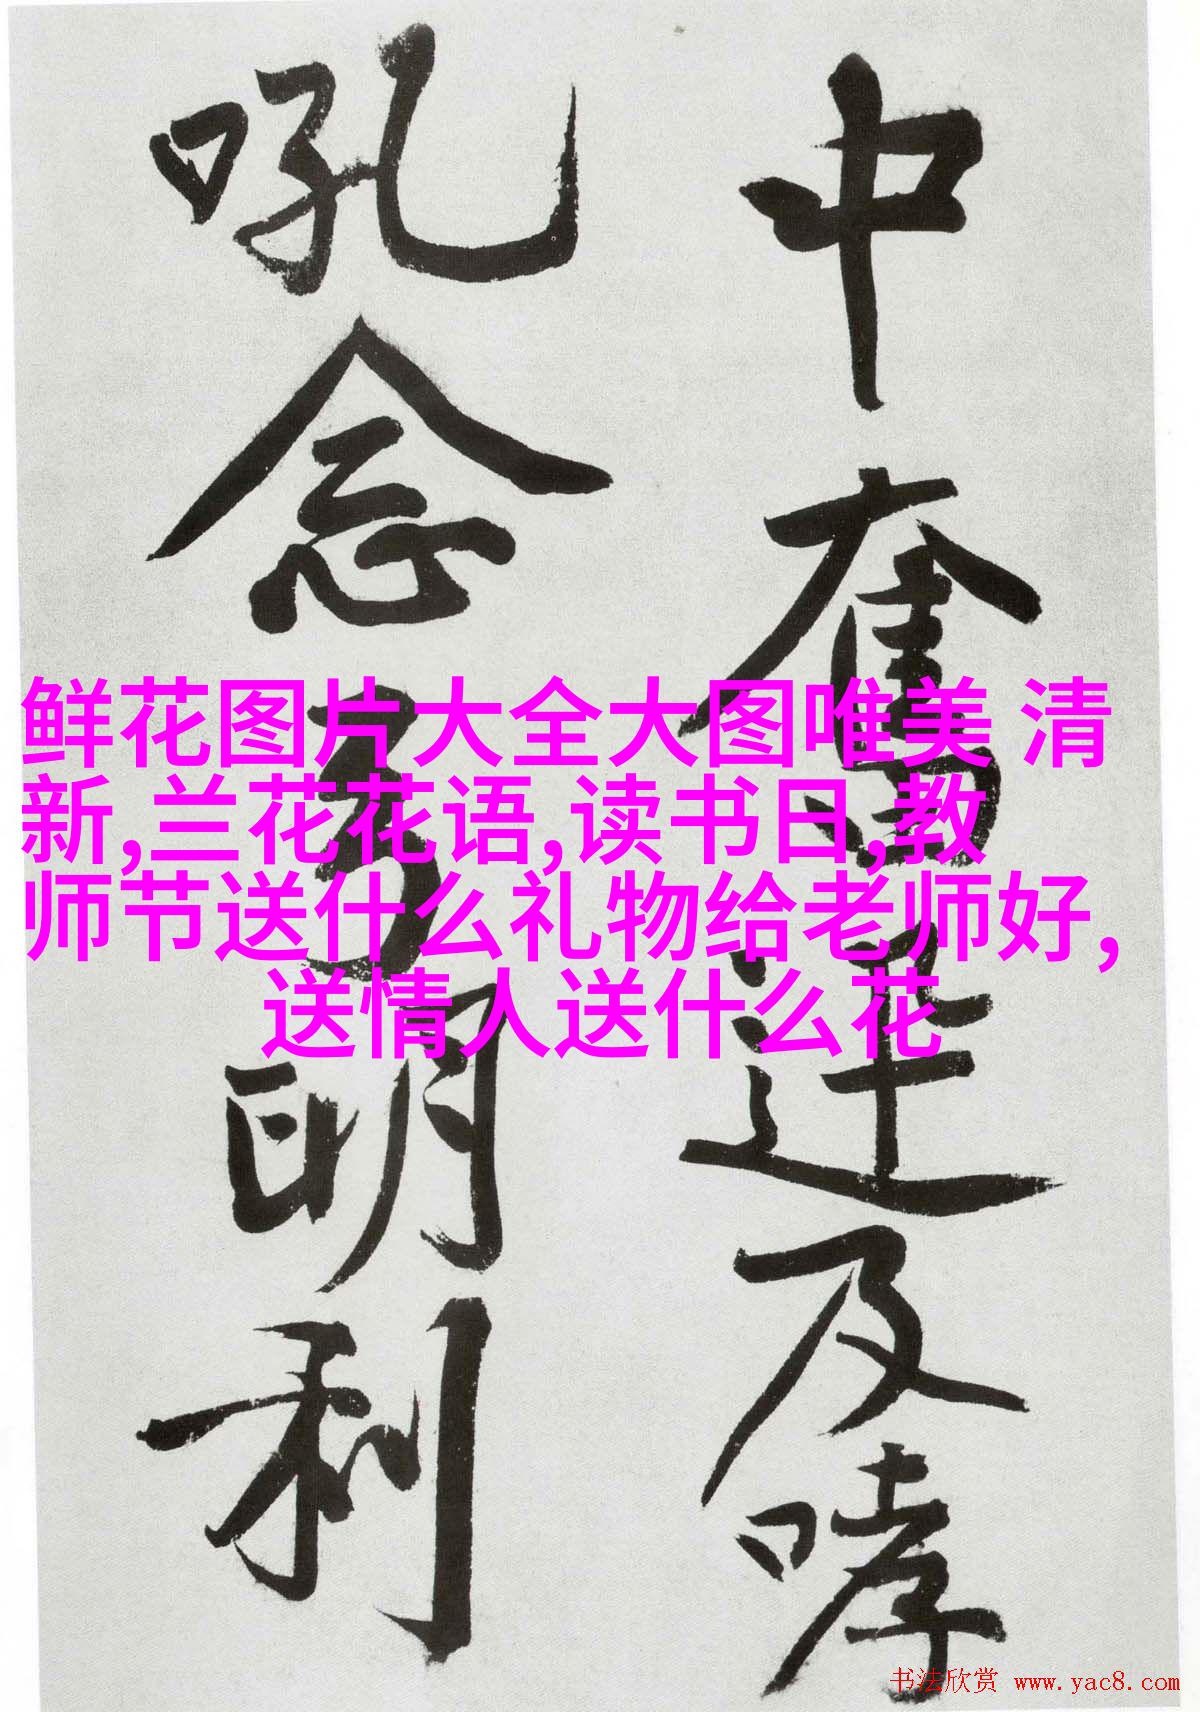 中奮迅及哮
吼念明利
鲜花图片大全大图唯美 清
新,兰花花语,读书日,教
师节送什么礼物给老师好,
送情人送什么花
书法欣赏 www.yac8.com